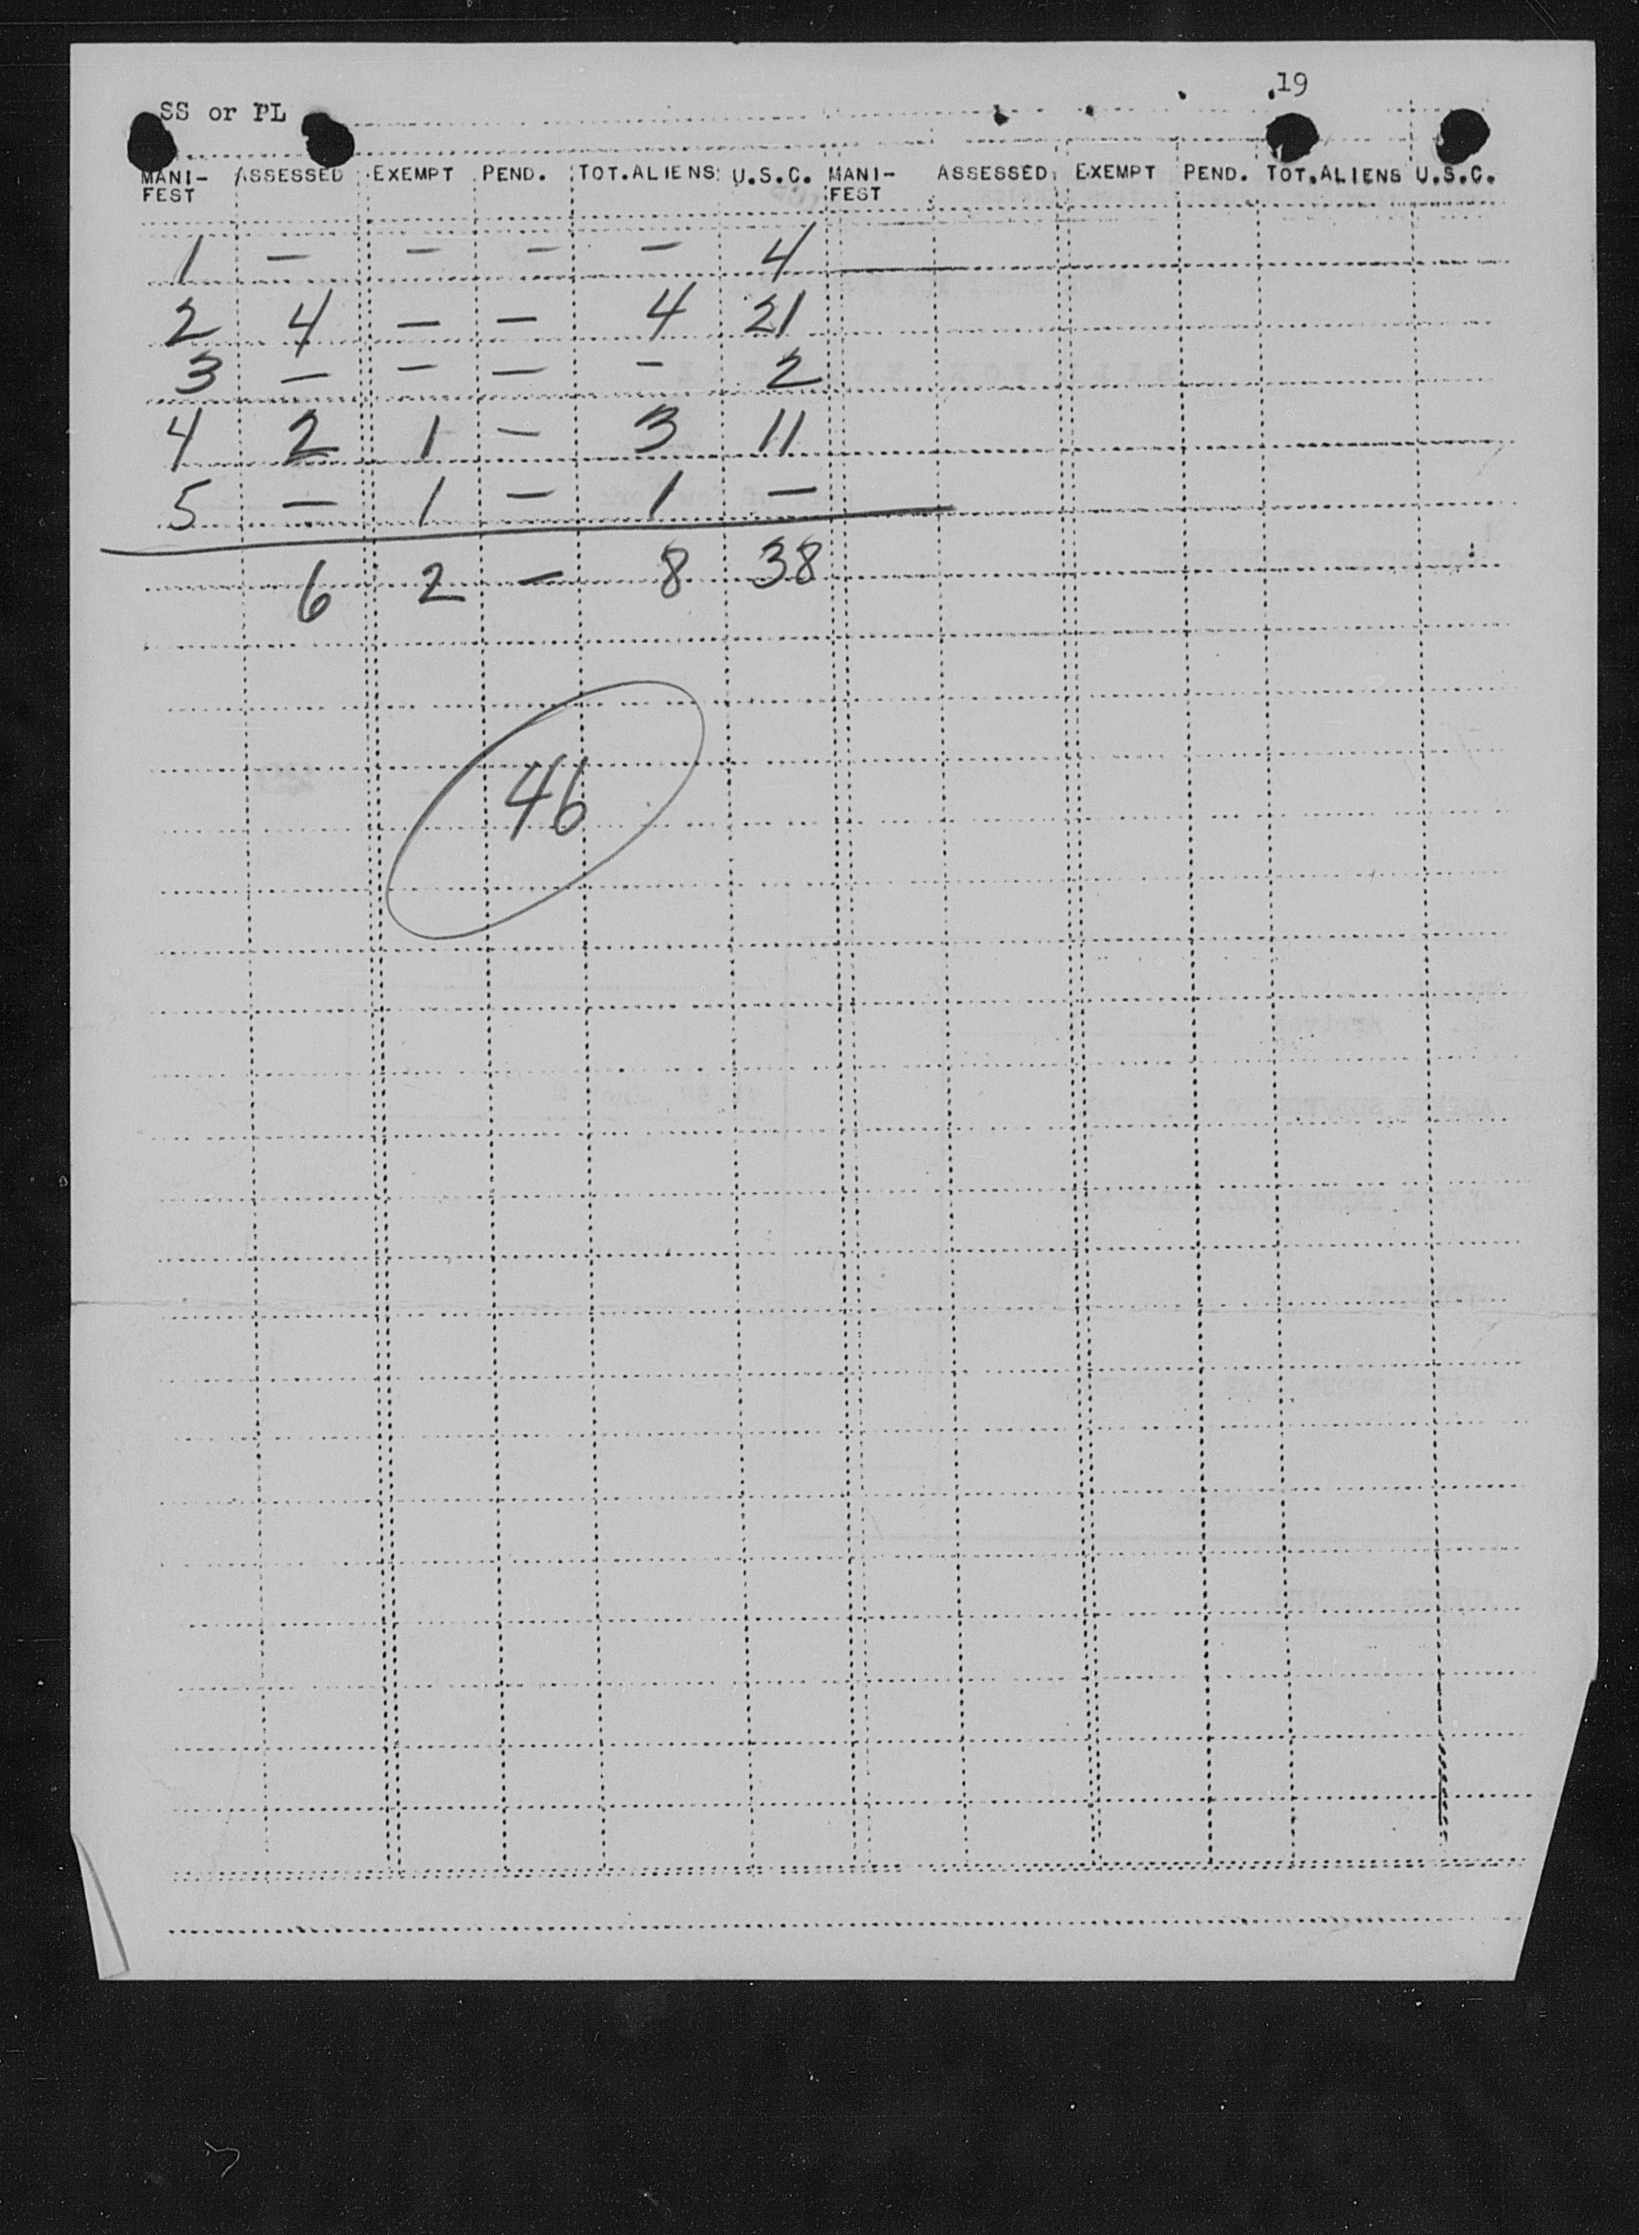 19
SS or PL
MANI- ASSESSED EXEMPT PEND. TOT.ALIENS U.S.C. MANI- ASSESSED EXEMPT PEND. TOT.ALIENS U.S.C.
FEST FEST
1 — — — — 4
2 4 — — 4 21
3 — — — — 2
4 2 1 — 3 11
5 — 1 — 1 —
6 2 — 8 38
46